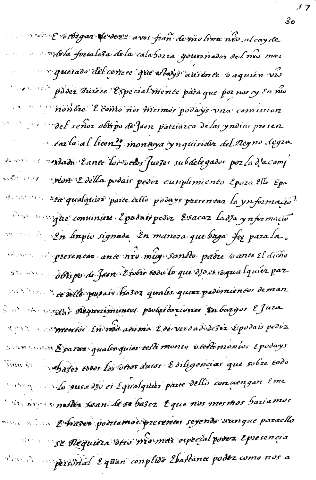 17
80
E otorgar poder a vos fran de molina nro alcayde
de la fortaleza de la calahorra governador del nro mar
quesado del cenete que estays ausente a quien
poder Especialmente para que por nos y en nro
nonbre E como nos mesmos podays una comision
del señor obispo de Jaen patriarca de las yndias presen
tarla al licendo montoya ynquisidor del Reyno de gra
nada E ante los otros Juezes subdelegados por la dha comi
sion E della podais pedir cunplimiento E para ello E pa
ra qualquier parte dello podays presentar la ynformacion
que convenga E podais pedir E sacar la dha ynformacion
En linpio signada En manera que haga fee para la
presentar ante nro muy santo padre o ante El dicho
obispo de Jaen E sobre todo lo que dho es E qualquier par
te dello podais hazer qualesquier pedimientos deman
das Requerimientos protestaciones Enbargos E Jura
mentos En nra anima E de verdad dezir E podais pedir
E sacar qualesquier testimonio o testimonios E podays
hazer todos los otros autos E diligencias que sobre todo
lo que dho es E qualquier parte dello convengan E me
nester sean de se hazer E que nos mesmos hariamos
E hazer podriamos presentes seyendo aunque para ello
se Requiera otro nro mas especial poder E presencia
personal E quan conplido E bastante poder como nos a